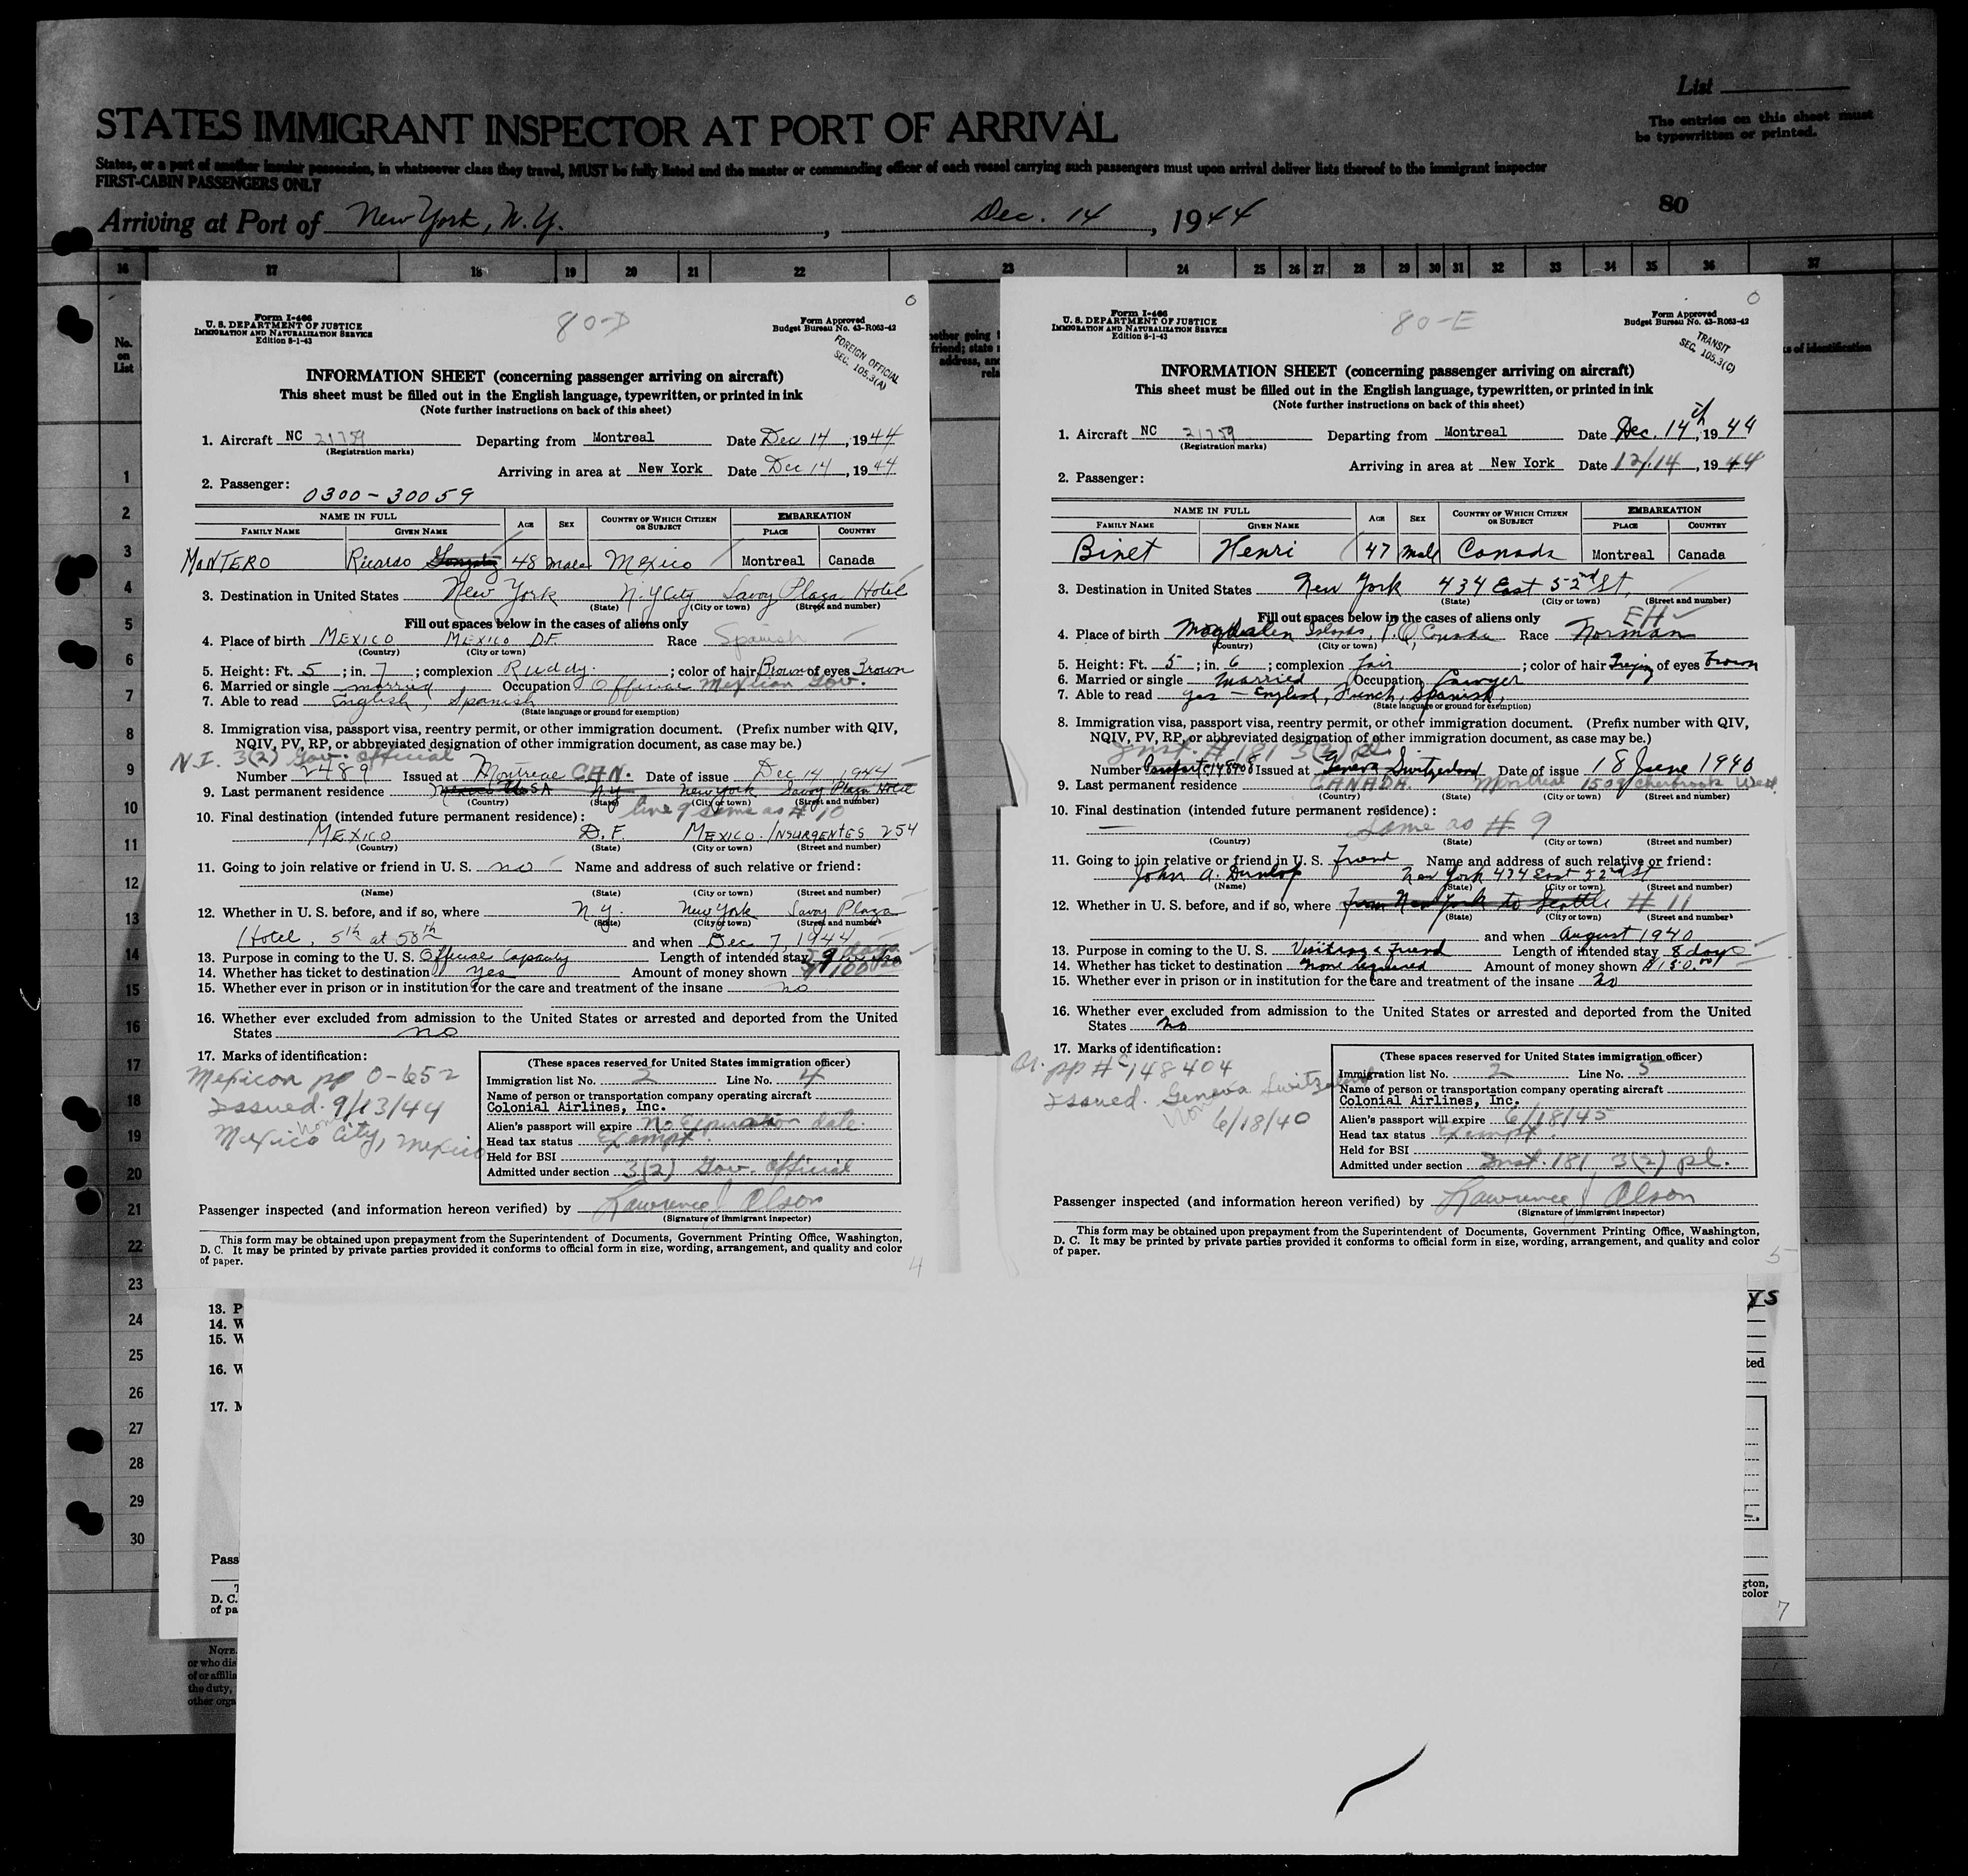 List
The entries on this sheet must
be typewritten or printed.
STATES IMMIGRANT INSPECTOR AT PORT OF ARRIVAL
States, or a port of another insular possession, in whatsoever class they travel, MUST be fully listed and the master or commanding officer of each vessel carrying such passengers must upon arrival deliver lists thereof to the immigrant inspector
FIRST-CABIN PASSENGERS ONLY
80
Arriving at Port of New York, N.Y., Dec. 14, 1944
16 17 18 19 20 21 22 23 24 25 26 27 28 29 30 31 32 33 34 35 36 37
No.
on
List
1
2
3
4
5
6
7
8
9
10
11
12
13
14
15
16
17
18
19
20
21
22
23
24
25
26
27
28
29
30
Form I-466
U. S. DEPARTMENT OF JUSTICE
IMMIGRATION AND NATURALIZATION SERVICE
Edition 8-1-43
80-D
0
Form Approved
Budget Bureau No. 43-R063-42
FOREIGN OFFICIAL
SEC. 105.3(A)
INFORMATION SHEET (concerning passenger arriving on aircraft)
This sheet must be filled out in the English language, typewritten, or printed in ink
(Note further instructions on back of this sheet)
1. Aircraft NC 21759 Departing from Montreal Date Dec 14, 1944
(Registration marks)
Arriving in area at New York Date Dec 14, 1944
2. Passenger:
0300-30059
NAME IN FULL AGE SEX COUNTRY OF WHICH CITIZEN OR SUBJECT EMBARKATION
FAMILY NAME GIVEN NAME PLACE COUNTRY
MONTERO Ricardo 48 Male Mexico Montreal Canada
3. Destination in United States New York N.Y City Savoy Plaza Hotel
(State) (City or town) (Street and number)
Fill out spaces below in the cases of aliens only
4. Place of birth MEXICO MEXICO D.F. Race Spanish
(Country) (City or town)
5. Height: Ft. 5; in. 7; complexion Ruddy; color of hair Brown of eyes Brown
6. Married or single married Occupation Official Mexican Gov.
7. Able to read English, Spanish
(State language or ground for exemption)
8. Immigration visa, passport visa, reentry permit, or other immigration document. (Prefix number with QIV,
NQIV, PV, RP, or abbreviated designation of other immigration document, as case may be.)
N.I. 3(2) Gov. Official
Number 2489 Issued at Montreal CAN. Date of issue Dec 14 1944
9. Last permanent residence USA N.Y. New York Savoy Plaza Hotel
(Country) (State) (City or town) (Street and number)
line 9 same as # 10
10. Final destination (intended future permanent residence):
MEXICO D.F. MEXICO. INSURGENTES 254
(Country) (State) (City or town) (Street and number)
11. Going to join relative or friend in U. S. no Name and address of such relative or friend:
(Name) (State) (City or town) (Street and number)
12. Whether in U. S. before, and if so, where N.Y. New York Savoy Plaza
(State) (City or town) (Street and number)
Hotel, 5th at 58th and when Dec 7, 1944
13. Purpose in coming to the U. S. Official Capacity Length of intended stay
14. Whether has ticket to destination Yes Amount of money shown 100
15. Whether ever in prison or in institution for the care and treatment of the insane no
16. Whether ever excluded from admission to the United States or arrested and deported from the United
States no
17. Marks of identification:
Mexican pp 0-652
Issued. 9/13/44
Mexico City, Mexico
None
(These spaces reserved for United States immigration officer)
Immigration list No. 2 Line No. 4
Name of person or transportation company operating aircraft
Colonial Airlines, Inc.
Alien's passport will expire No Expiration date.
Head tax status Exempt.
Held for BSI
Admitted under section 3(2) Gov. Official
Passenger inspected (and information hereon verified) by Lawrence J Olson
(Signature of immigrant inspector)
This form may be obtained upon prepayment from the Superintendent of Documents, Government Printing Office, Washington,
D. C. It may be printed by private parties provided it conforms to official form in size, wording, arrangement, and quality and color
of paper.
4
Form I-466
U. S. DEPARTMENT OF JUSTICE
IMMIGRATION AND NATURALIZATION SERVICE
Edition 8-1-43
80-E
0
Form Approved
Budget Bureau No. 43-R063-42
TRANSIT
SEC. 105.3(C)
INFORMATION SHEET (concerning passenger arriving on aircraft)
This sheet must be filled out in the English language, typewritten, or printed in ink
(Note further instructions on back of this sheet)
1. Aircraft NC 21759 Departing from Montreal Date Dec. 14th, 1944
(Registration marks)
Arriving in area at New York Date 12/14, 1944
2. Passenger:
NAME IN FULL AGE SEX COUNTRY OF WHICH CITIZEN OR SUBJECT EMBARKATION
FAMILY NAME GIVEN NAME PLACE COUNTRY
Binet Henri 47 Male Canada Montreal Canada
3. Destination in United States New York 434 East 52nd St.
(State) (City or town) (Street and number)
Fill out spaces below in the cases of aliens only
4. Place of birth Magdalen Islands, P.Q, Canada Race Norman
(Country) (City or town)
5. Height: Ft. 5; in. 6; complexion fair; color of hair of eyes Brown
6. Married or single Married Occupation Lawyer
7. Able to read yes - English, French, Spanish,
(State language or ground for exemption)
8. Immigration visa, passport visa, reentry permit, or other immigration document. (Prefix number with QIV,
NQIV, PV, RP, or abbreviated designation of other immigration document, as case may be.)
Inst. # 181 3(2) pl.
Number Issued at Geneva Switzerland Date of issue 18 June 1940
9. Last permanent residence CANADA. Montreal 1509 Sherbrook West
(Country) (State) (City or town) (Street and number)
10. Final destination (intended future permanent residence):
Same as # 9
(Country) (State) (City or town) (Street and number)
11. Going to join relative or friend in U. S. Friend Name and address of such relative or friend:
John A. Dunlop New York 434 East 52nd St
(Name) (State) (City or town) (Street and number)
12. Whether in U. S. before, and if so, where from New York to Seattle # 11
(State) (City or town) (Street and number)
and when August 1940
13. Purpose in coming to the U. S. Visiting a Friend Length of intended stay 8 days
14. Whether has ticket to destination none required Amount of money shown $150.00
15. Whether ever in prison or in institution for the care and treatment of the insane no
16. Whether ever excluded from admission to the United States or arrested and deported from the United
States no
17. Marks of identification:
pp # C148404
Issued. Geneva Switzerland
None
6/18/40
(These spaces reserved for United States immigration officer)
Immigration list No. 2 Line No. 5
Name of person or transportation company operating aircraft
Colonial Airlines, Inc.
Alien's passport will expire 6/18/45
Head tax status Exempt.
Held for BSI
Admitted under section Inst. 181, 3(2) pl.
Passenger inspected (and information hereon verified) by Lawrence J Olson
(Signature of immigrant inspector)
This form may be obtained upon prepayment from the Superintendent of Documents, Government Printing Office, Washington,
D. C. It may be printed by private parties provided it conforms to official form in size, wording, arrangement, and quality and color
of paper.
5
13. P
14. W
15. W
16. W
17. M
Pass
D. C.
of pa
ys
ted
gton,
color
7
NOTE.
or who dis
of or affilia
the duty,
other orga